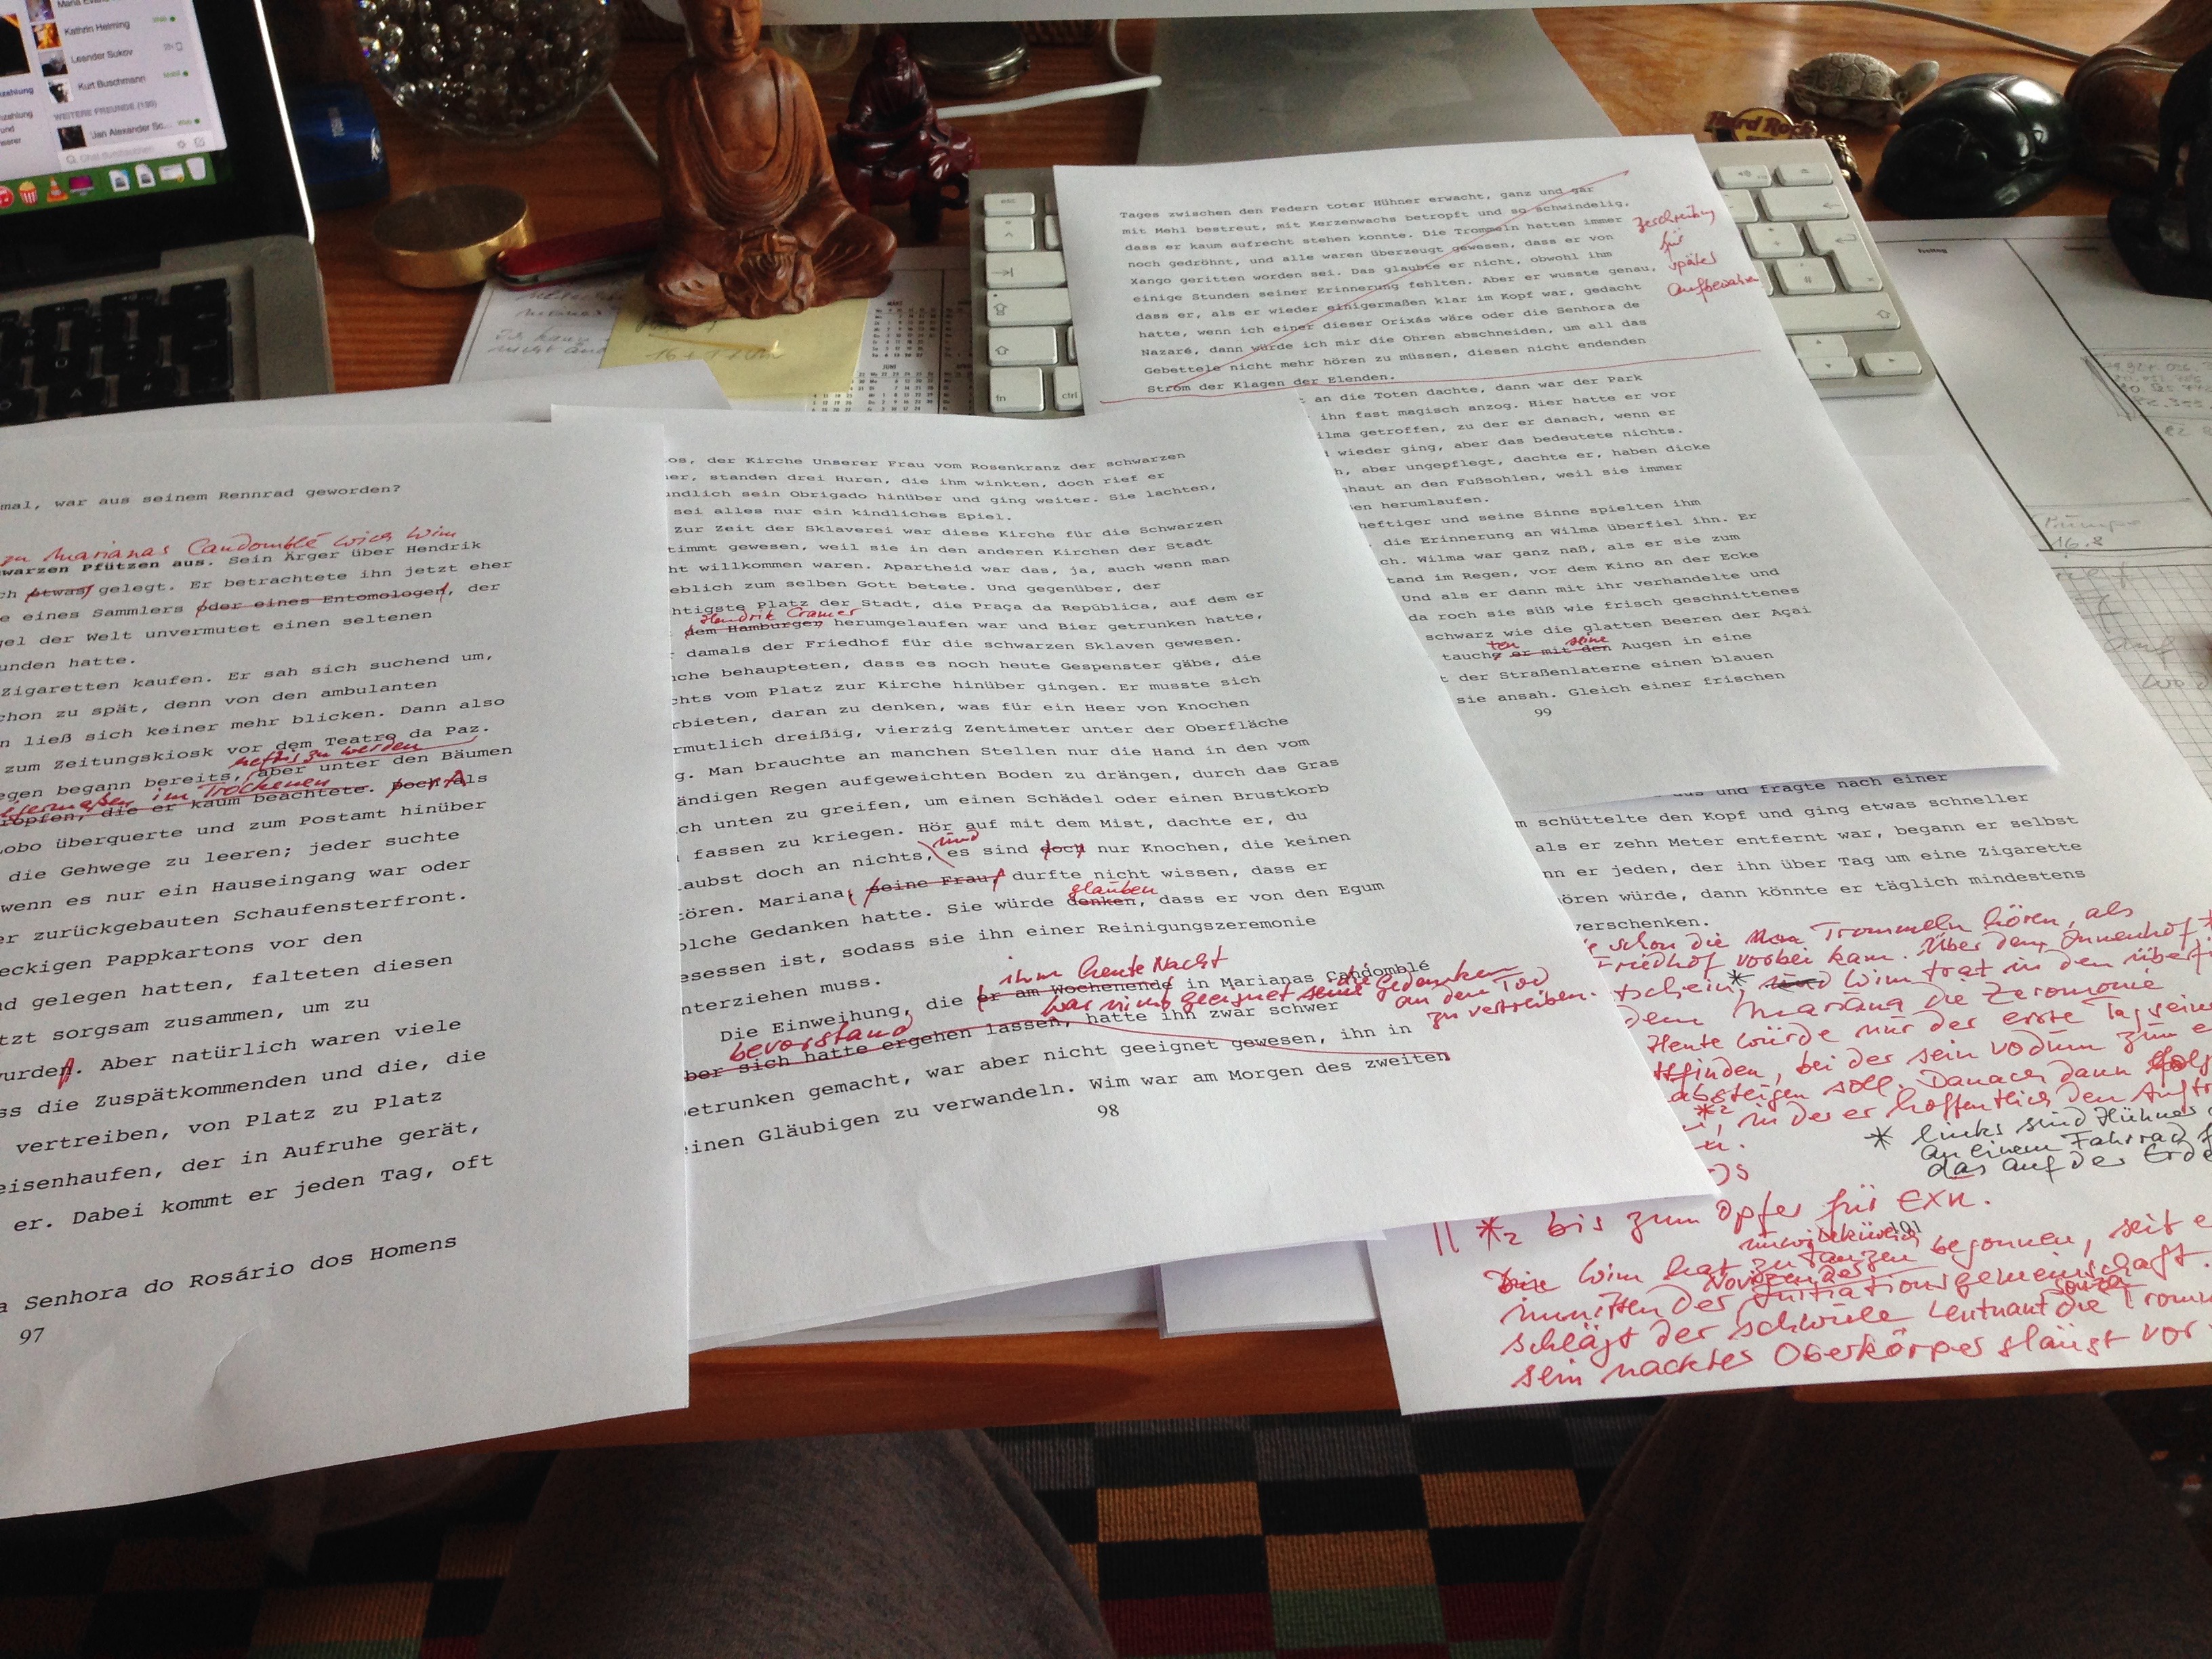 Kathrin Helming
Leander Sukov
Kurt Buschmann
WEITERE FREUNDE (195)
Jan Alexander Sc...
Web
Hard Rock
esc
fn
ctrl
MÄRZ
JUNI
Freitag
mal, war aus seinem Rennrad geworden?
zu Marianas Candomblé wich Wim
warzen Pfützen aus. Sein Ärger über Hendrik
ch etwas gelegt. Er betrachtete ihn jetzt eher
e eines Sammlers oder eines Entomologen, der
gel der Welt unvermutet einen seltenen
unden hatte.
zigaretten kaufen. Er sah sich suchend um,
chon zu spät, denn von den ambulanten
n ließ sich keiner mehr blicken. Dann also
zum Zeitungskiosk vor dem Teatro da Paz.
heftig zu werden
egen begann bereits, aber unter den Bäumen
im Trockenen
ropfen, die er kaum beachtete. Doch Als
Lobo überquerte und zum Postamt hinüber
die Gehwege zu leeren; jeder suchte
wenn es nur ein Hauseingang war oder
er zurückgebauten Schaufensterfront.
eckigen Pappkartons vor den
nd gelegen hatten, falteten diesen
tzt sorgsam zusammen, um zu
wurden. Aber natürlich waren viele
ss die Zuspätkommenden und die, die
vertreiben, von Platz zu Platz
eisenhaufen, der in Aufruhe gerät,
er. Dabei kommt er jeden Tag, oft
a Senhora do Rosário dos Homens
97
os, der Kirche Unserer Frau vom Rosenkranz der schwarzen
er, standen drei Huren, die ihm winkten, doch rief er
undlich sein Obrigado hinüber und ging weiter. Sie lachten,
sei alles nur ein kindliches Spiel.
Zur Zeit der Sklaverei war diese Kirche für die Schwarzen
timmt gewesen, weil sie in den anderen Kirchen der Stadt
ht willkommen waren. Apartheid war das, ja, auch wenn man
eblich zum selben Gott betete. Und gegenüber, der
htigste Platz der Stadt, die Praça da República, auf dem er
Hendrik Cramer
dem Hamburger herumgelaufen war und Bier getrunken hatte,
damals der Friedhof für die schwarzen Sklaven gewesen.
che behaupteten, dass es noch heute Gespenster gäbe, die
chts vom Platz zur Kirche hinüber gingen. Er musste sich
rbieten, daran zu denken, was für ein Heer von Knochen
rmutlich dreißig, vierzig Zentimeter unter der Oberfläche
g. Man brauchte an manchen Stellen nur die Hand in den vom
ändigen Regen aufgeweichten Boden zu drängen, durch das Gras
ch unten zu greifen, um einen Schädel oder einen Brustkorb
fassen zu kriegen. Hör auf mit dem Mist, dachte er, du
und
aubst doch an nichts, es sind doch nur Knochen, die keinen
tören. Mariana, seine Frau, durfte nicht wissen, dass er
glauben
olche Gedanken hatte. Sie würde denken, dass er von den Egum
esessen ist, sodass sie ihn einer Reinigungszeremonie
nterziehen muss.
ihm heute Nacht
Die Einweihung, die er am Wochenende in Marianas Candomblé
bevorstand war nicht geeignet seine die Gedanken an den Tod zu vertreiben.
ber sich hatte ergehen lassen, hatte ihn zwar schwer
etrunken gemacht, war aber nicht geeignet gewesen, ihn in
einen Gläubigen zu verwandeln. Wim war am Morgen des zweiten
98
Tages zwischen den Federn toter Hühner erwacht, ganz und gar
mit Mehl bestreut, mit Kerzenwachs betropft und so schwindelig,
dass er kaum aufrecht stehen konnte. Die Trommeln hatten immer
noch gedröhnt, und alle waren überzeugt gewesen, dass er von
Xango geritten worden sei. Das glaubte er nicht, obwohl ihm
einige Stunden seiner Erinnerung fehlten. Aber er wusste genau,
dass er, als er wieder einigermaßen klar im Kopf war, gedacht
hatte, wenn ich einer dieser Orixás wäre oder die Senhora de
Nazaré, dann würde ich mir die Ohren abschneiden, um all das
Gebettele nicht mehr hören zu müssen, diesen nicht endenden
Strom der Klagen der Elenden.
Beschreibung
für
später
aufbewahren
an die Toten dachte, dann war der Park
ihn fast magisch anzog. Hier hatte er vor
ilma getroffen, zu der er danach, wenn er
wieder ging, aber das bedeutete nichts.
h, aber ungepflegt, dachte er, haben dicke
nhaut an den Fußsohlen, weil sie immer
en herumlaufen.
heftiger und seine Sinne spielten ihm
, die Erinnerung an Wilma überfiel ihn. Er
ch. Wilma war ganz naß, als er sie zum
tand im Regen, vor dem Kino an der Ecke
Und als er dann mit ihr verhandelte und
da roch sie süß wie frisch geschnittenes
schwarz wie die glatten Beeren der Açai
ten seine
tauchte er mit den Augen in eine
t der Straßenlaterne einen blauen
sie ansah. Gleich einer frischen
99
aus und fragte nach einer
m schüttelte den Kopf und ging etwas schneller
als er zehn Meter entfernt war, begann er selbst
nn er jeden, der ihn über Tag um eine Zigarette
ören würde, dann könnte er täglich mindestens
verschenken.
schon die Trommeln hören, als
Friedhof vorbei kam. Über dem Innenhof *
* und Wim trat in den
dem Mariana die Zeremonie
Heute würde nur der erste Tag seiner
finden, bei der sein Vodum zum e
absteigen soll. Danach dann
*2 , in der er hoffentlich den Auftr
* links sind Hühner
an einem Fahrrad
das auf der Erde
|| *2 bis zum Opfer für Exu.
101
unwillkürlich
Wim hat zu tanzen begonnen, seit e
Novizen der
inmitten der Initiationsgemeinschaft.
Souza
schlägt der schwüle Leutnant die Tromm
sein nacktes Oberkörper glänzt vor